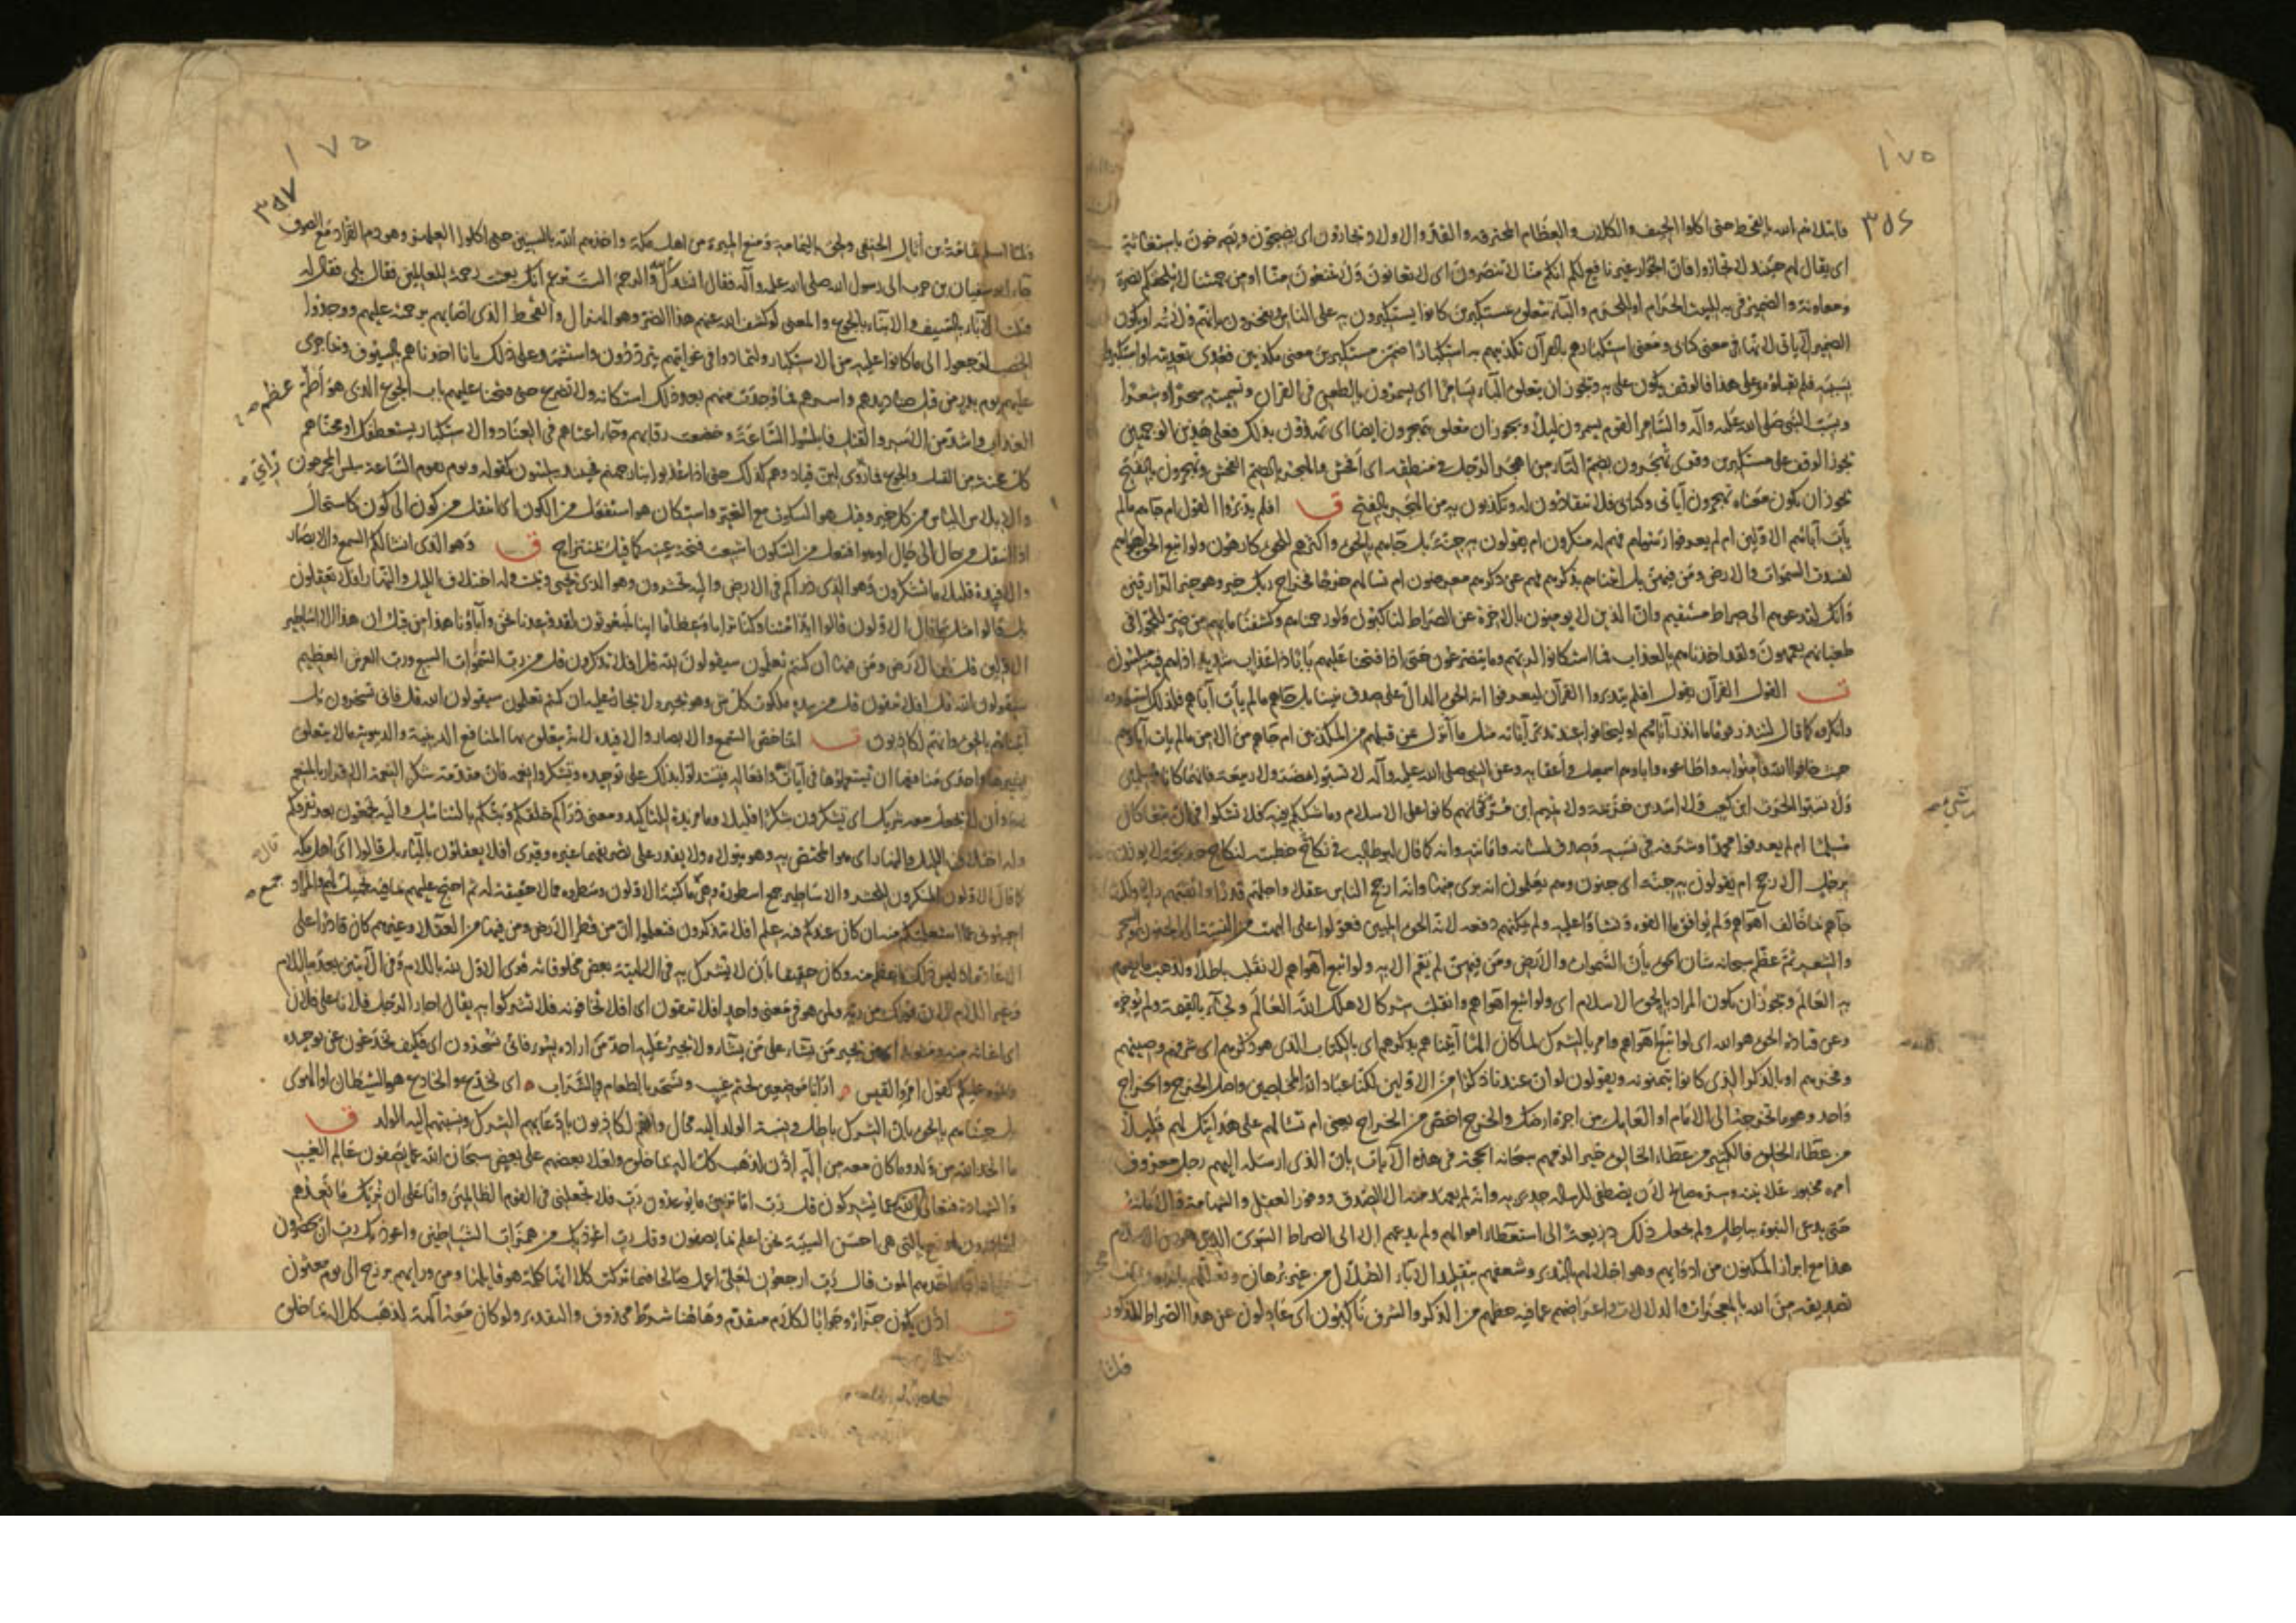 ١٧٥
٣٥٦
فابتلاهم الله بالقحط حتى اكلوا الجيف والكلاب والعظام المحترقة والقد والاولاد تجارون اى يضجون ويصرخون باستغاثة
اى يقال لهم حينئذ لا تجاروا فان الجوار غير نافع لكم انكم منا لا تنصرون اى لا تغاثون ولا تمنعون منا او من جهتنا لا يلحقكم نصرة
ومعاونة والضمير فى به للبيت الحرام او للحرم والباء يتعلق بمستكبرين كانوا يستكبرون به على الناس يفتخرون بانهم ولاته او يكون
الضمير لآياتى لانها فى معنى كتابى ومعنى استكبارهم بالقرآن تكذيبهم به استكبارا ضمن مستكبرين معنى مكذبين فعدى تعديته او استكبروا
بسببه فلم يقبلوه وعلى هذا فالوقف يكون على به ويجوز ان يتعلق الباء بسامرا اى يسمرون بالطعن فى القرآن وتسميته سحرا وشعرا
وبسب النبى صلى الله عليه وآله والسامر القوم يسمرون ليلا ويجوز ان يتعلق بتهجرون ايضا اى تهذون بذلك فعلى هذين الوجهين
يجوز الوقف على مستكبرين وقرى تهجرون بضم التاء من اهجر الرجل فى منطقه اى افحش والهجر بالضم الفحش وتهجرون بالفتح
يجوز ان يكون معناه تهجرون آياتى وكتابى فلا تنقادون له وتكذبون به من الهجر بالفتح ق افلم يدبروا القول ام جاءهم مالم
يأت آبائهم الاولين ام لم يعرفوا رسولهم فهم له منكرون ام يقولون به جنة بل جاءهم بالحق واكثرهم للحق كارهون ولو اتبع الحق اهواءهم
لفسدت السموات والارض ومن فيهن بل اتيناهم بذكرهم فهم عن ذكرهم معرضون ام تسالهم خرجا فخراج ربك خير وهو خير الرازقين
وانك لتدعوهم الى صراط مستقيم وان الذين لا يومنون بالاخرة عن الصراط لناكبون ولو رحمناهم وكشفنا ما بهم من ضر للجوا فى
طغيانهم يعمهون ولقد اخذناهم بالعذاب فما استكانوا لربهم وما يتضرعون حتى اذا فتحنا عليهم بابا ذا عذاب شديد اذا هم فيه مبلسون
ت القول القرآن يقول افلم يتدبروا القرآن ليعرفوا انه الحق الدال على صدق نبينا بل جاءهم مالم يأت آباءهم فلذلك استبعدوه
وانكروه كما قال لتنذر قوما ما انذر آباؤهم او ليخافوا عند تدبر آياته مثل ما انزل عن قبلهم من المكذبين ام جاءهم من الامن مالم يات آباءهم
حين خافوا الله فآمنوا به واطاعوه وآباؤهم اسمعيل واعقابه وعن النبى صلى الله عليه وآله لا تسبوا مضر ولا ربيعة فانهما كانا مسلمين
ولا تسبوا الحرث ابن كعب ولا اسد بن خزيمة ولا تميم ابن مر فانهم كانوا على الاسلام وما شككتم فيه فلا تشكوا فى ان تبعا كان
مسلما ام لم يعرفوا محمدا وشرفه فى نسبه وصدق لسانه وامانته وانه كما قال ابو طالب فى نكاح خطبته لنكاح خديجة لا يوزن
برجل الا رجح ام يقولون به جنة اى جنون وهم يعلمون انه برى منها وانه ارجح الناس عقلا واجلهم قدرا واثقبهم رايا ولكنه
جآءهم بما خالف اهواءهم ولم يوافق ما الفوه ونشاوا عليه ولم يمكنهم دفعه لانه الحق المبين فعولوا على البهت من النسبة الى الجنون والسحر
والشعر ثم عظم سبحانه شان الحق بان السموات والارض ومن فيهن لم يقم الا به ولو اتبع اهواءهم لانقلب باطلا ولذهب ما يقوم
به العالم ويجوز ان يكون المراد بالحق الاسلام اى ولو اتبع اهواءهم وانقلب شركا لاهلك الله العالم ولجآء بالقيمة ولم يؤخره
وعن قتادة الحق هو الله اى لو اتبع اهواءهم وامر بالشرك لما كان الها آتيناهم بذكرهم اى بالكتاب الذى هو ذكرهم اى شرفهم وصيتهم
وفخرهم او بالذكر الذى كانوا يتمنونه ويقولون لو ان عندنا ذكرا من الاولين لكنا عباد الله المخلصين واصل الخرج والخراج
واحد وهو ما تخرجه الى الامام او العامل من اجرة ارضك والخرج اخص من الخراج يعنى ام تسالهم على هدايتك لهم قليلا
من عطاء الخلق فالكثير من عطاء الخالق خير الزمهم سبحانه الحجة فى هذه الآيات بان الذى ارسله اليهم رجل معروف
امره مخبور علانيته وسره صالح لان يصطفى للرسالة جدير به وانه لم يعهد منه الا الصدق ووفور العقل والشهامة والامانة
حتى يدعى النبوة بباطل ولم يجعل ذلك ذريعة الى استعطاء اموالهم ولم يدعهم الا الى الصراط السوى الذى هو دين الاسلام
هذا مع ابراز المكنون من ادوائهم وهو اخلالهم بالتدبر وشغفهم بتقليد الآباء الضلال من غير برهان وتعللهم بانه مجنون
تصديقه من الله بالمعجزات والدلالات واعراضهم عما فيه حظهم من الذكر والشرف ناكبون اى عادلون عن هذا الصراط المذكور
١٧٥
٣٥٧
ولما اسلم ثمامة بن اثال الحنفى ولحق باليمامة ومنع الميرة من اهل مكة واخذهم الله بالسنين حتى اكلوا العلهز وهو دم القراد مع الصوف
جاء ابو سفيان بن حرب الى رسول الله صلى الله عليه وآله فقال انشدك الله والرحم الست تزعم انك بعثت رحمة للعالمين فقال بلى فقال له
قتلت الآباء بالسيف والابناء بالجوع والمعنى لو كشف الله عنهم هذا الضر وهو الهزال والقحط الذى اصابهم برحمته عليهم ووجدوا
الخصب لرجعوا الى ما كانوا عليه من الاستكبار ولتمادوا فى غوايتهم يترددون واستشهد على ذلك بانا اخذناهم بالسيوف وبما جرى
عليهم يوم بدر من قتل صناديدهم واسرهم فما وجدت منهم بعد ذلك استكانة ولا تضرع حتى فتحنا عليهم باب الجوع الذى هو اطم
العذاب واشد من الاسر والقتل فابلسوا الساعة وخضعت رقابهم وجاء اعتاهم فى العناد والاستكبار يستعطفك او محناهم
كل محنة من القتل والجوع فما رؤى لين قياد وهم كذلك حتى اذا عذبوا بنار جهنم فحينئذ يبلسون كقوله ويوم تقوم الساعة يبلس المجرمون
والابلاس الياس من كل خير وقيل هو السكوت مع التحير واستكان هو استفعل من الكون اى انتقل من كون الى كون كاستحال
اذا انتقل من حال الى حال او هو افتعل من السكون اشبعت فتحة عينه كما قيل بمنتزاح ق وهو الذى انشا لكم السمع والابصار
والافئدة قليلا ما تشكرون وهو الذى ذراكم فى الارض واليه تحشرون وهو الذى يحيى ويميت وله اختلاف الليل والنهار افلا تعقلون
بل قالوا مثل ما قال الاولون قالوا ائذا متنا وكنا ترابا وعظاما ائنا لمبعوثون لقد وعدنا نحن وآباؤنا هذا من قبل ان هذا الا اساطير
الاولين قل لمن الارض ومن فيها ان كنتم تعلمون سيقولون لله قل افلا تذكرون قل من رب السموات السبع ورب العرش العظيم
سيقولون الله قل افلا تتقون قل من بيده ملكوت كل شى وهو يجير ولا يجار عليه ان كنتم تعلمون سيقولون الله قل فانى تسحرون بل
آتيناهم بالحق وانهم لكاذبون ت انما خص السمع والابصار والافئدة لانه يتعلق بها المنافع الدينية والدنيوية مالا يتعلق
بغيرها واحدى منافعها ان يستعملوها فى آيات الله وافعاله فيستدلوا بذلك على توحيده ويشكروا نعمه فان مقدمة شكر النعمة الاقرار بالمنعم
بها وان لا يجعل معه شريك اى تشكرون شكرا قليلا وما مزيدة للتاكيد ومعنى ذراكم خلقكم وبثكم بالتناسل واليه تجمعون بعد تفرقكم
وله اختلاف الليل والنهار اى هو المختص به وهو متوليه ولا يقدر على تصريفهما غيره وقرى افلا يعقلون بالياء بل قالوا اى اهل مكة
كما قال الاولون المنكرون للحشر والاساطير جمع اسطورة وهى ما كتبه الاولون وسطروه مما لا حقيقة له ثم احتج عليهم
اجيبونى عما استعلمكم منه ان كان عندكم فيه علم افلا تذكرون فتعلموا ان من فطر الارض ومن فيها من العقلاء وغيرهم كان قادرا على
الاعادة اذ ليس ذلك باعظم منه وكان حقيقا بان لا يشرك به فى الالهية بعض مخلوقاته قرى الاول لله باللام وفى الآيتين بعد باللام
وغير اللام لان قولك من ربه ولمن هو فى معنى واحد افلا تتقون اى افلا تخافونه فلا تشركوا به يقال اجار الرجل فلانا على فلان
اى اغاثه منه ومنعه اى من يجير من يشاء على من يشاء ولا يجير عليه احد من اراده بسوء فانى تسحرون اى فكيف تخدعون عن توحيده
ويموه عليكم كقول امرؤ القيس ارانا موضعين لحتم غيب ونسحر بالطعام وبالشراب اى نخدع والخادع هو الشيطان او الهوى
بل جئناهم بالحق بان الشرك باطل ونسبة الولد اليه محال وانهم لكاذبون بادعايهم الشرك ونسبتهم اليه الولد ق
ما اتخذ الله من ولد وما كان معه من اله اذن لذهب كل اله بما خلق ولعلا بعضهم على بعض سبحان الله عما يصفون عالم الغيب
والشهادة فتعالى الله عما يشركون قل رب اما ترينى ما يوعدون رب فلا تجعلنى فى القوم الظالمين وانا على ان نريك ما نعدهم
لقادرون ادفع بالتى هى احسن السيئة نحن اعلم بما يصفون وقل رب اعوذ بك من همزات الشياطين واعوذ بك رب ان يحضرون
حتى اذا جاء احدهم الموت قال رب ارجعون لعلى اعمل صالحا فيما تركت كلا انها كلمة هو قايلها ومن ورايهم برزخ الى يوم يبعثون
ت اذن يكون جزاء وجوابا لكلام متقدم وهاهنا شرط محذوف والتقدير ولو كان معه آلهة لذهب كل اله بما خلق